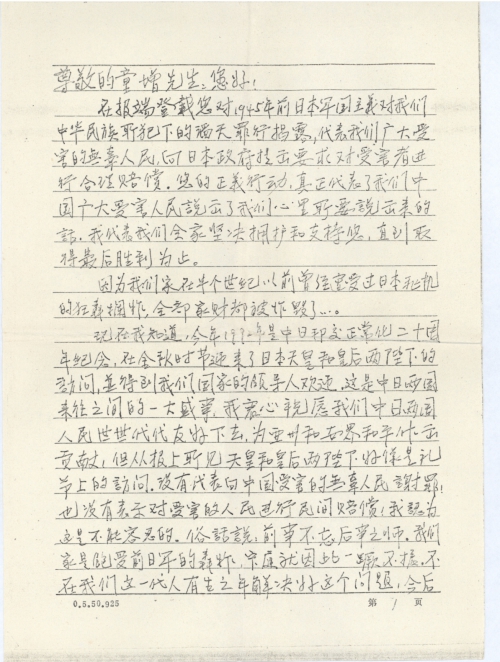 尊敬的童增先生:您好!
在报端登载您对1945年前日本军国主义对我们
中华民族所犯下的滔天罪行揭露,代表我们广大受
害的無辜人民,向日本政府提出要求对受害者进
行合理賠償。您的正义行动,真正代表了我们中
国广大受害人民説出了我们心里所要説出来的
話。我代表我们全家坚决拥护和支持您,直到取
得最后胜利为止。
因为我们家在半个世纪以前曾经蒙受过日本飞机
的狂轰
全部家财都被炸毁了…。
现在我知道,今年1992年是中日邦交正常化二十周
年纪念,在金秋时节迎来了日本天皇和皇后两陛下的
訪问,並得到我们国家的领导人欢迎,这是中日两国
来往之间的一大盛事,我衷心祝愿我们中日两国
人民世世代代友好下去,为亚州和世界和平作出
贡献,但从报上所见天皇和皇后两陛下好像是礼
节上的訪问。没有代表向中国受害的無辜人民謝罪,
也没有表示对受害的人民进行民间賠償,我認为
这是不能容忍的。俗話説,前事不忘后事之师。我们
家是饱受前日军的轰炸,家庭就因此一蹶不振。不
在我们这一代人有生之年解决好这个问题,今后
0.5.50.925 第 1 页